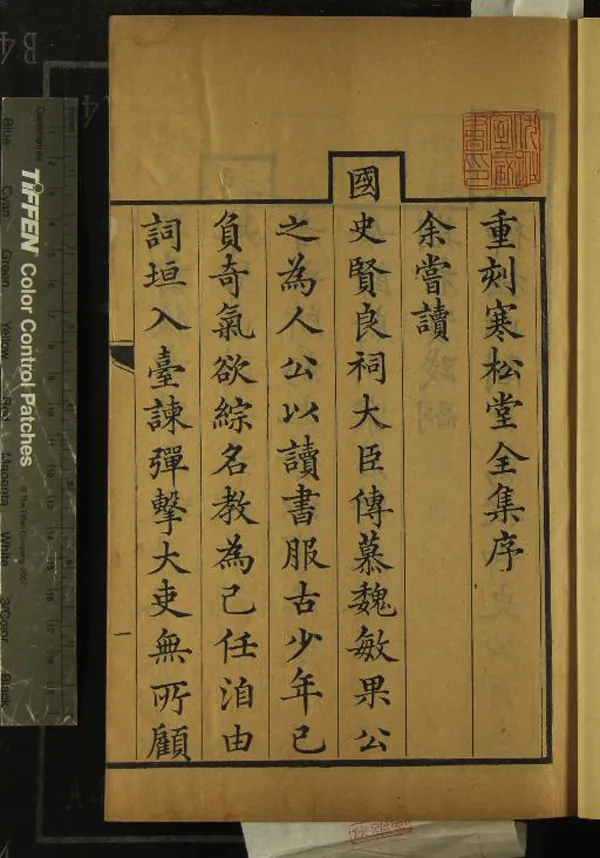 重刻寒松堂全集序
余嘗讀
國史賢良祠大臣傳慕魏敏果公
之為人公以讀書服古少年已
負奇氣欲綜名教為己任洎由
詞垣入臺諫彈擊大吏無所顧
一
TIFFEN Color Control Patches
Blue
Cyan
Green
Yellow
Red
Magenta
White
3/Color
Black
Centimetres